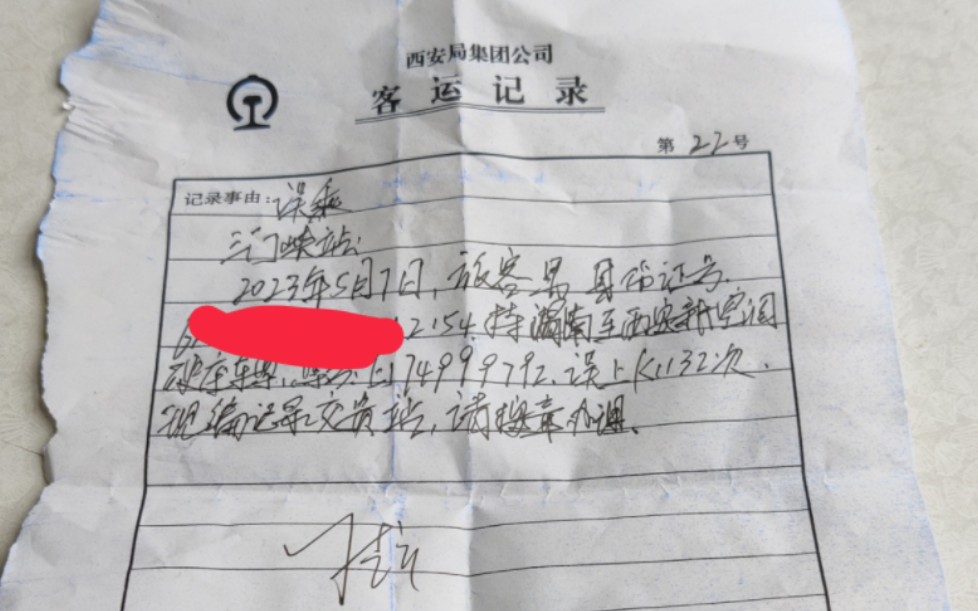 西安局集团公司
客运记录
第 22 号
记录事由：误乘
三门峡站：
2023年5月7日，旅客男身份证号
2154.持渭南至西安新空调
硬座车票，票号：L174999792，误上K1132次，
现编记录交贵站，请按章办理。